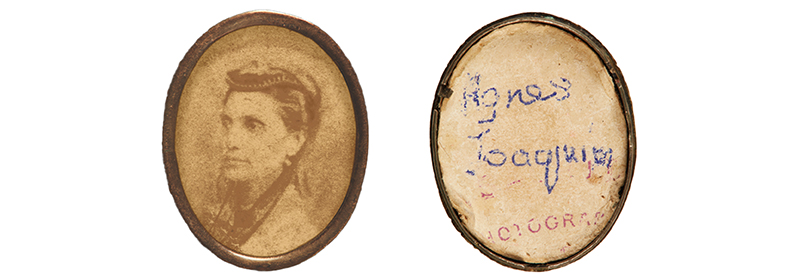 Agnes
Joaquim
OTOGRA